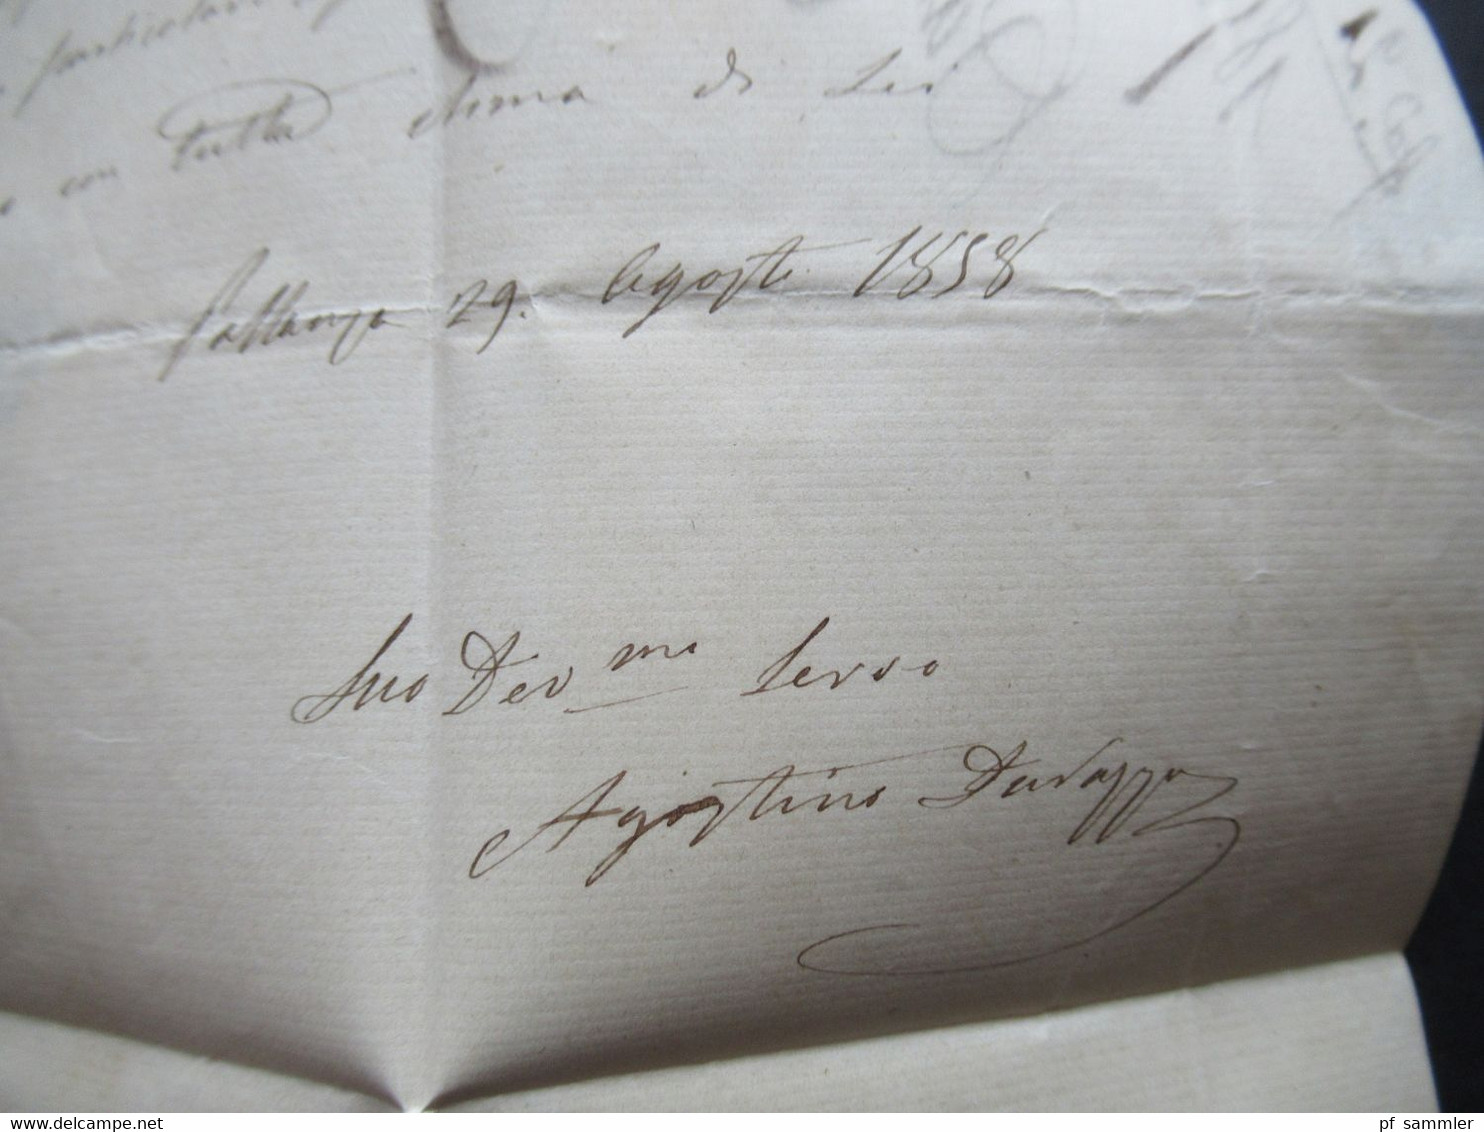 particolar
con tutta stima di Lei
Pallanza 29. Agosto 1858
Suo Dev.mo Servo
Agostino Durazzo
delcampe.net
pf_sammler